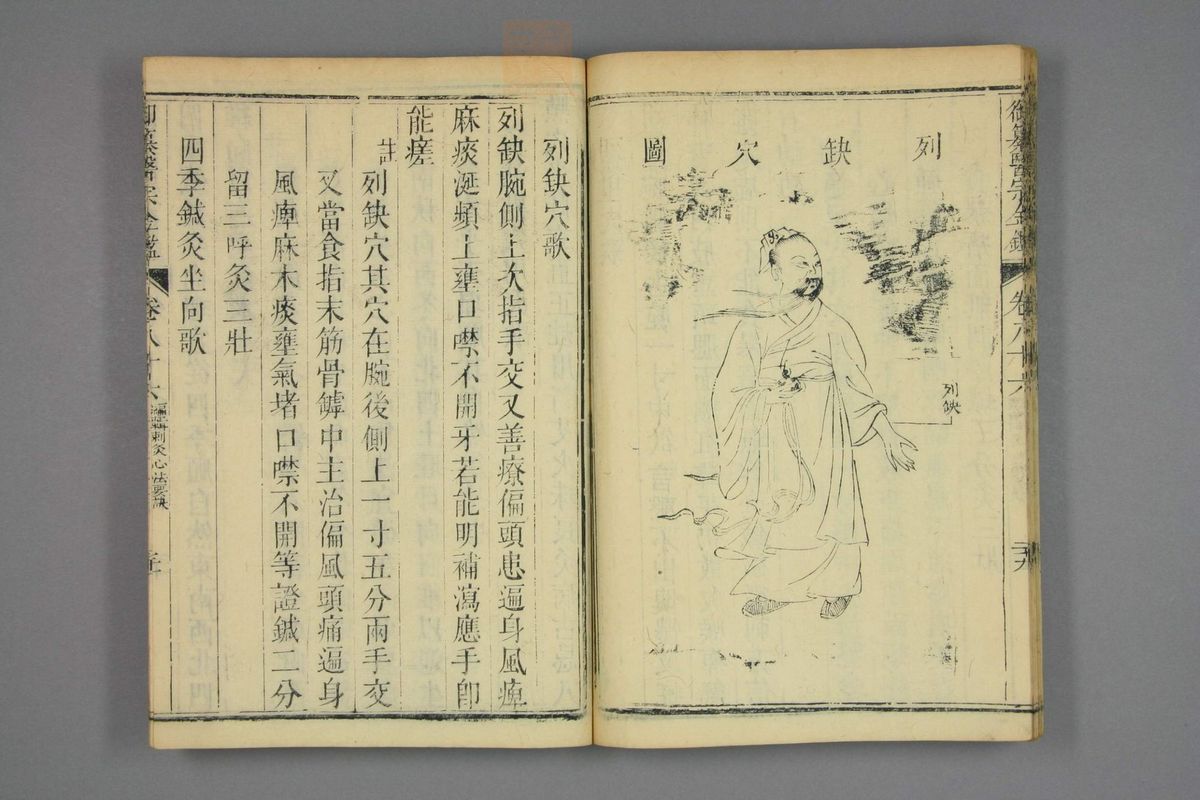 御纂醫宗金鑑 卷八十六
列缺穴圖
列缺
列缺穴歌
列缺腕側上次指手交叉善療偏頭患遍身風痺
麻痰涎頻上壅口噤不開牙若能明補瀉應手卽
能瘥
註列缺穴其穴在腕後側上一寸五分兩手交
叉當食指末筋骨罅中主治偏風頭痛遍身
風痺麻木痰壅氣堵口噤不開等證鍼二分
留三呼灸三壯
四季鍼灸坐向歌
御纂醫宗金鑑 卷八十六 編輯刺灸心法要訣